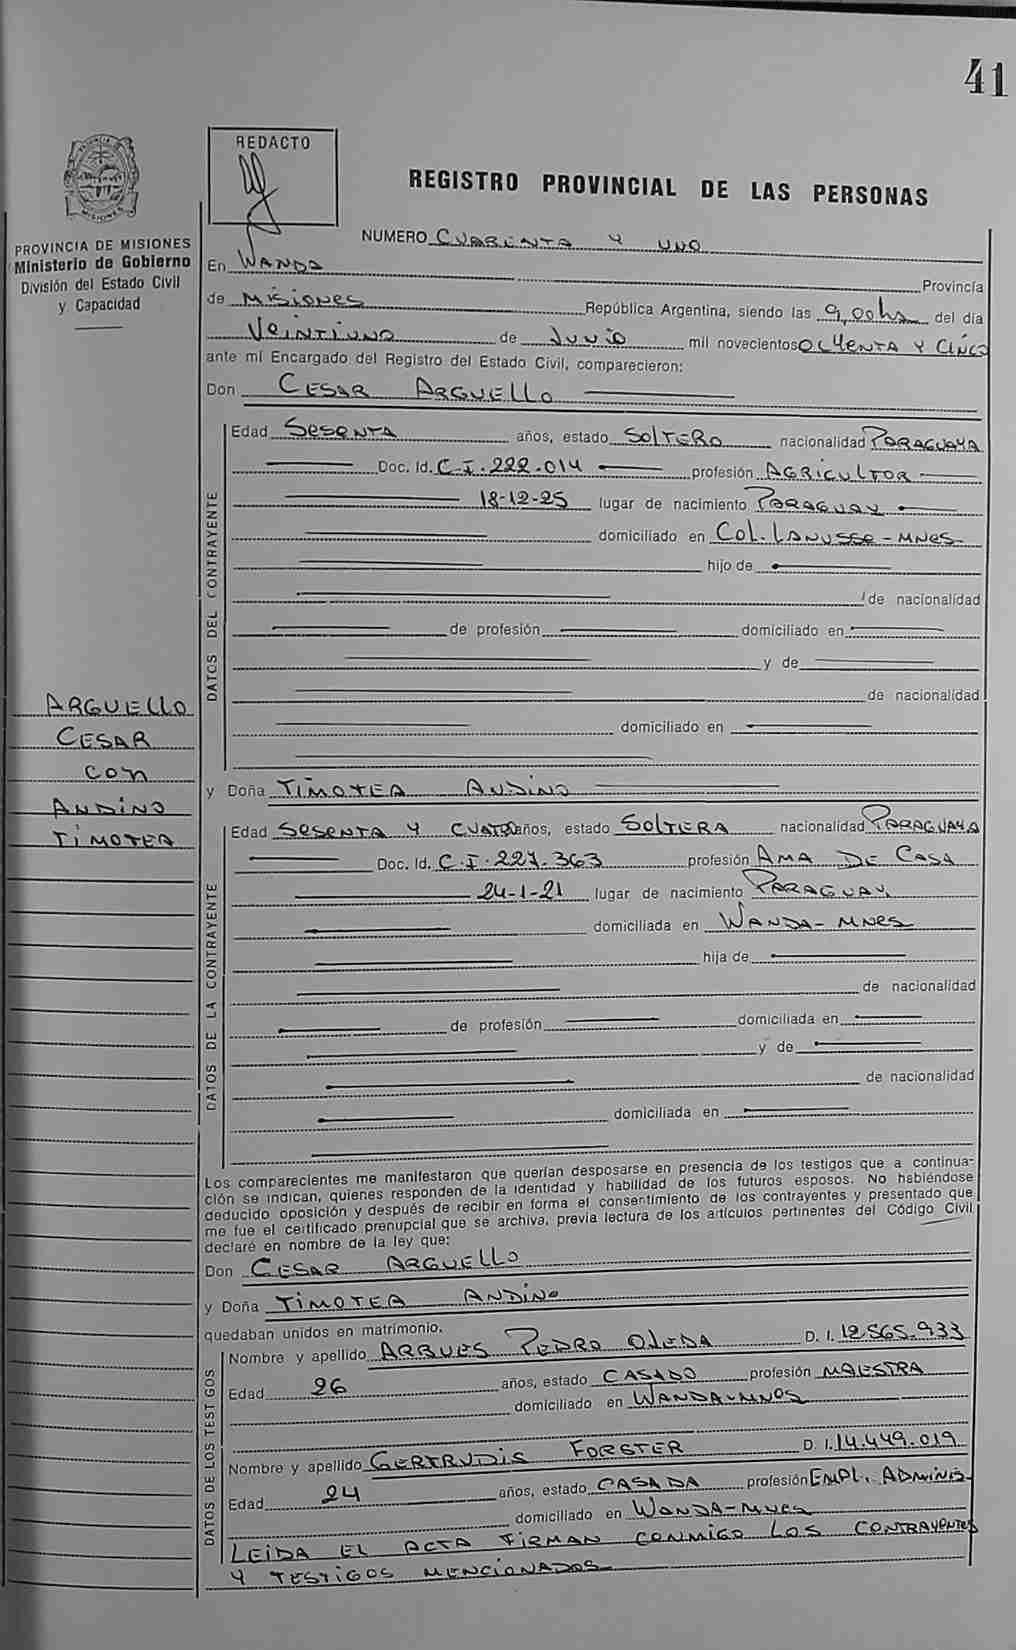 41
REDACTO
REGISTRO PROVINCIAL DE LAS PERSONAS
PROVINCIA DE MISIONES
Ministerio de Gobierno
División del Estado Civil
y Capacidad
NUMERO CUARENTA Y UNO
En WANDA Provincia
de MISIONES República Argentina, siendo las 9,00hs del día
VEINTIUNO de JUNIO mil novecientos OCHENTA Y CINCO
ante mí Encargado del Registro del Estado Civil, comparecieron:
Don CESAR ARGUELLO
DATOS DEL CONTRAYENTE
Edad SESENTA años, estado SOLTERO nacionalidad PARAGUAYA
Doc. Id. C.I. 222.014 profesión AGRICULTOR
18-12-25 lugar de nacimiento PARAGUAY
domiciliado en COL. LANUSSE - MNES-
hijo de
de nacionalidad
de profesión domiciliado en
y de
de nacionalidad
domiciliado en
ARGUELLO
CESAR
CON
ANDINO
TIMOTEA
y Doña TIMOTEA ANDINO
DATOS DE LA CONTRAYENTE
Edad SESENTA Y CUATRO años, estado SOLTERA nacionalidad PARAGUAYA
Doc. Id. C.I. 227.363 profesión AMA DE CASA
24-1-21 lugar de nacimiento PARAGUAY
domiciliada en WANDA - MNES
hija de
de nacionalidad
de profesión domiciliada en
y de
de nacionalidad
domiciliada en
Los comparecientes me manifestaron que querían desposarse en presencia de los testigos que a continua-
ción se indican, quienes responden de la identidad y habilidad de los futuros esposos. No habiéndose
deducido oposición y después de recibir en forma el consentimiento de los contrayentes y presentado que
me fue el certificado prenupcial que se archiva, previa lectura de los artículos pertinentes del Código Civil
declaré en nombre de la ley que:
Don CESAR ARGUELLO
y Doña TIMOTEA ANDINO
quedaban unidos en matrimonio.
DATOS DE LOS TESTIGOS
Nombre y apellido PEDRO OJEDA D. I. 12.565.933
Edad 26 años, estado CASADO profesión MAESTRA
domiciliado en WANDA-MNES
Nombre y apellido GERTRUDIS FORSTER D. I. 14.449.019
Edad 24 años, estado CASADA profesión EMPL. ADMINIS-
domiciliado en WANDA-MNES
LEIDA EL ACTA FIRMAN CONMIGO LOS CONTRAYENTES
Y TESTIGOS MENCIONADOS